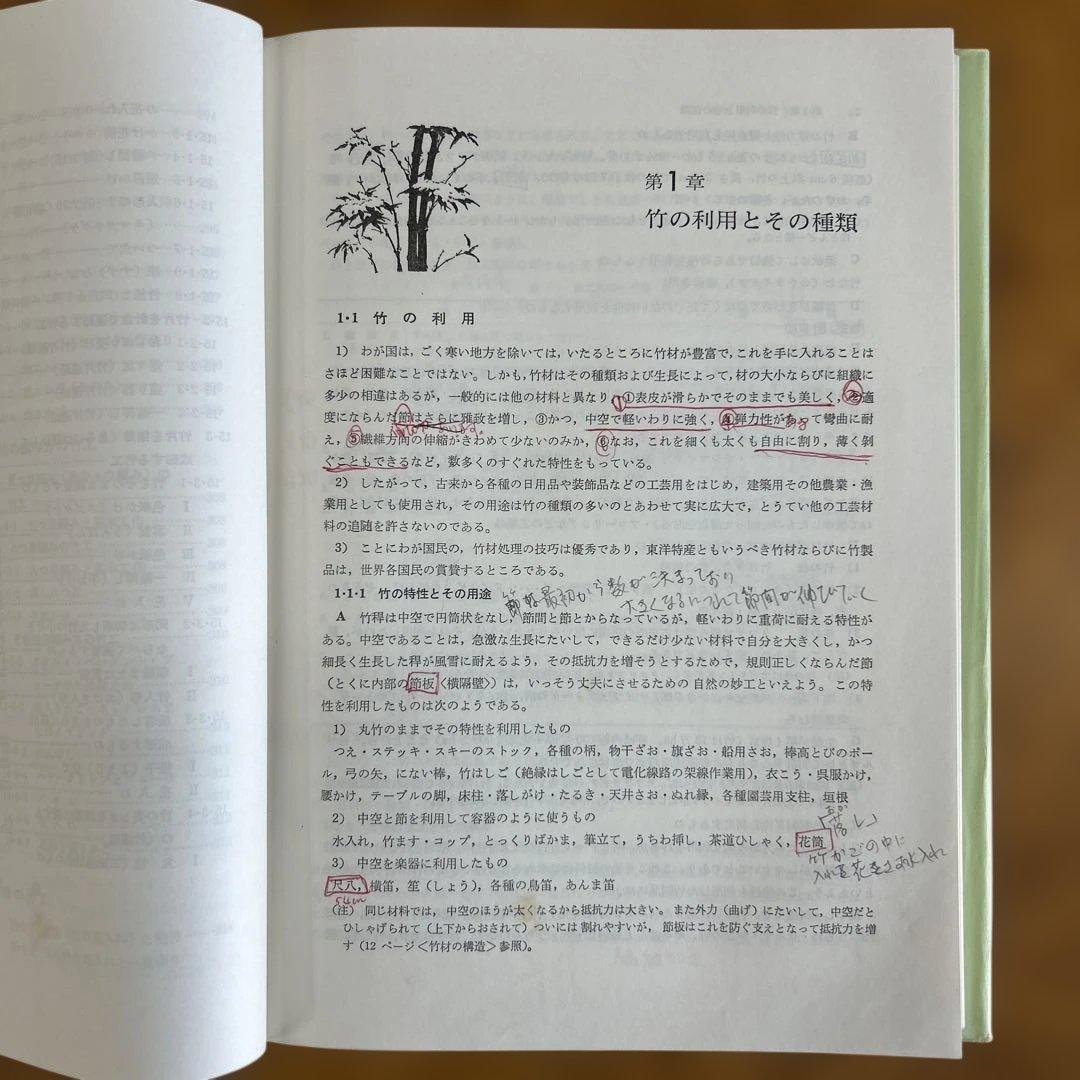 第1章
竹の利用とその種類
1・1 竹の利用
1) わが国は，ごく寒い地方を除いては，いたるところに竹材が豊富で，これを手に入れることは
さほど困難なことではない。しかも，竹材はその種類および生長によって，材の大小ならびに組織に
多少の相違はあるが，一般的には他の材料と異なり，①表皮が滑らかでそのままでも美しく，②適
度にならんだ節はさらに雅致を増し，③かつ，中空で軽いわりに強く，④弾力性があって彎曲に耐
え，⑤繊維方向の伸縮がきわめて少ないのみか，⑥なお，これを細くも太くも自由に割り，薄く剝
ぐこともできるなど，数多くのすぐれた特性をもっている。
2) したがって，古来から各種の日用品や装飾品などの工芸用をはじめ，建築用その他農業・漁
業用としても使用され，その用途は竹の種類の多いのとあわせて実に広大で，とうてい他の工芸材
料の追随を許さないのである。
3) ことにわが国民の，竹材処理の技巧は優秀であり，東洋特産ともいうべき竹材ならびに竹製
品は，世界各国民の賞賛するところである。
節は最初から数が決まっており
大きくなるにつれて節間が伸びていく
1・1・1 竹の特性とその用途
A 竹稈は中空で円筒状をなし，節間と節とからなっているが，軽いわりに重荷に耐える特性が
ある。中空であることは，急激な生長にたいして，できるだけ少ない材料で自分を大きくし，かつ
細長く生長した稈が風雪に耐えるよう，その抵抗力を増そうとするためで，規則正しくならんだ節
（とくに内部の節板〈横隔壁〉）は，いっそう丈夫にさせるための自然の妙工といえよう。この特
性を利用したものは次のようである。
1) 丸竹のままでその特性を利用したもの
つえ・ステッキ・スキーのストック，各種の柄，物干ざお・旗ざお・船用さお，棒高とびのポー
ル，弓の矢，にない棒，竹はしご（絶縁はしごとして電化線路の架線作業用），衣こう・呉服かけ，
腰かけ，テーブルの脚，床柱・落しがけ・たるき・天井さお・ぬれ縁，各種園芸用支柱，垣根
2) 中空と節を利用して容器のように使うもの
水入れ，竹ます・コップ，とっくりばかま，筆立て，うちわ挿し，茶道ひしゃく，花筒
竹かごの中に
3) 中空を楽器に利用したもの
尺八，横笛，笙（しょう），各種の鳥笛，あんま笛
54cm
（注） 同じ材料では，中空のほうが太くなるから抵抗力は大きい。また外力（曲げ）にたいして，中空だと
ひしゃげられて（上下からおされて）ついには割れやすいが，節板はこれを防ぐ支えとなって抵抗力を増
す（12 ページ＜竹材の構造＞参照）。